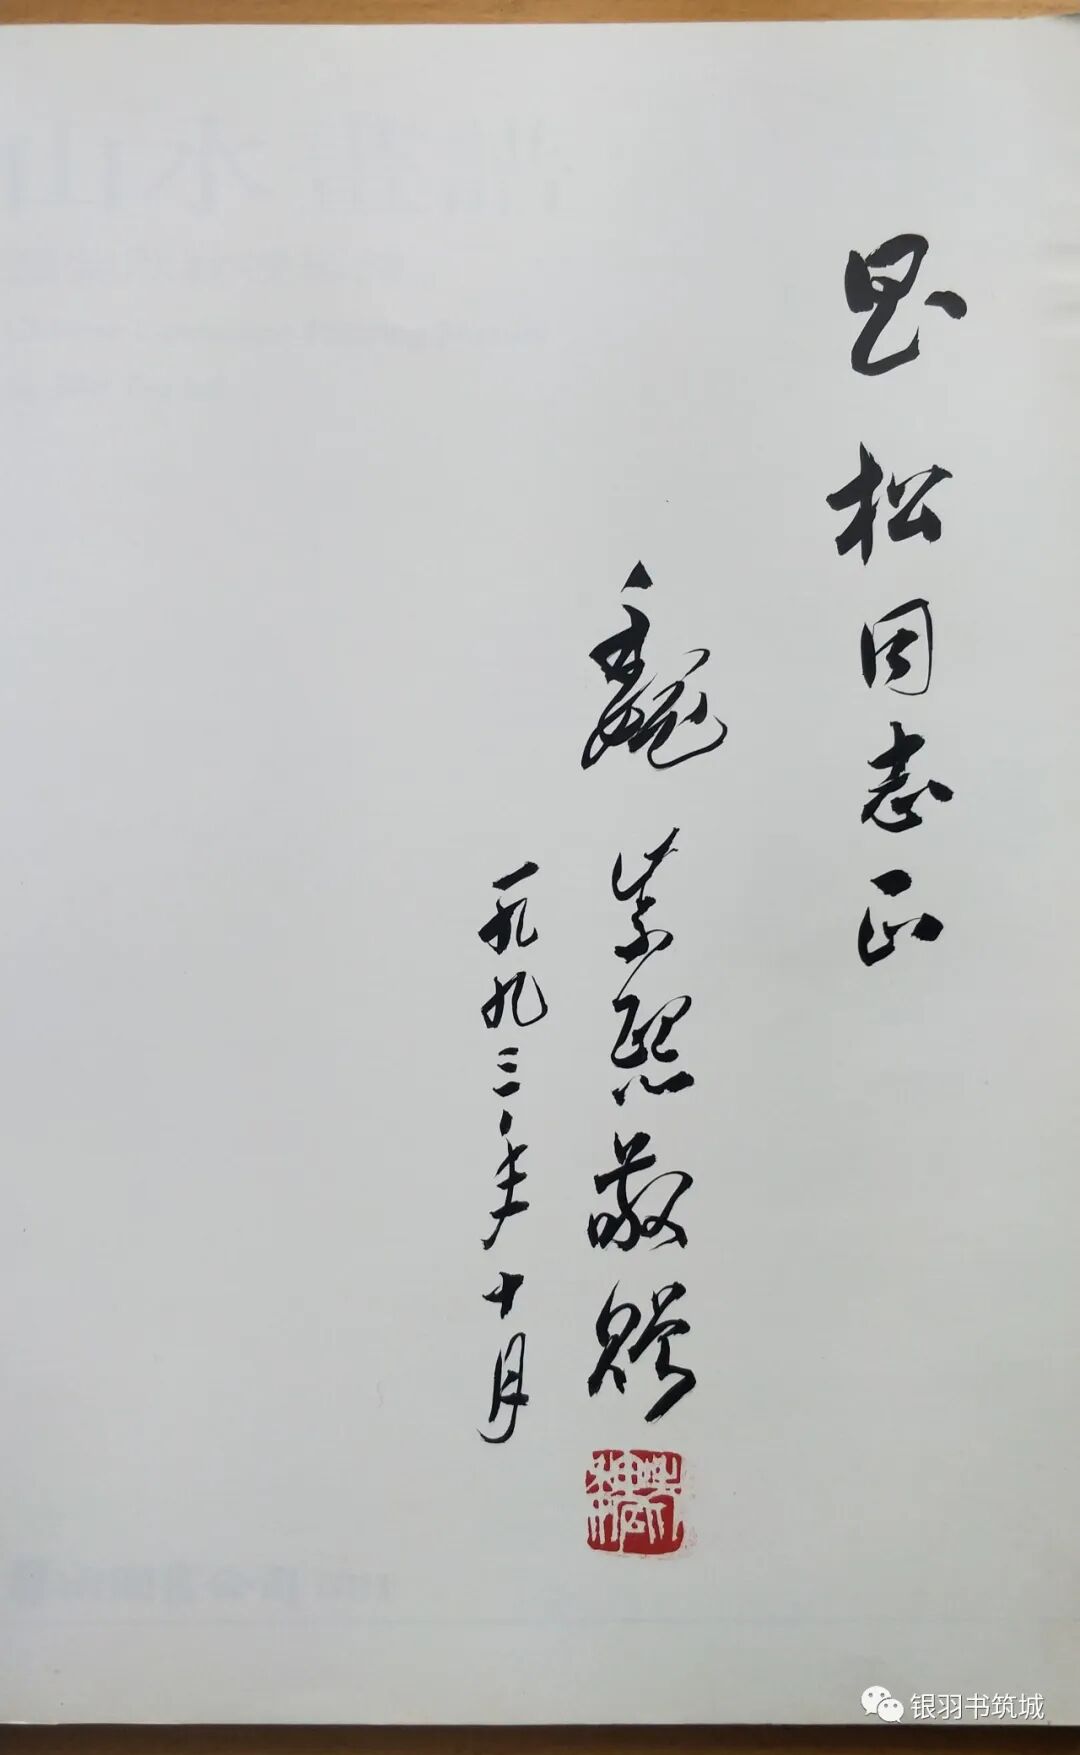 思松同志正
魏紫熙敬赠
一九九三年十月
银羽书筑城